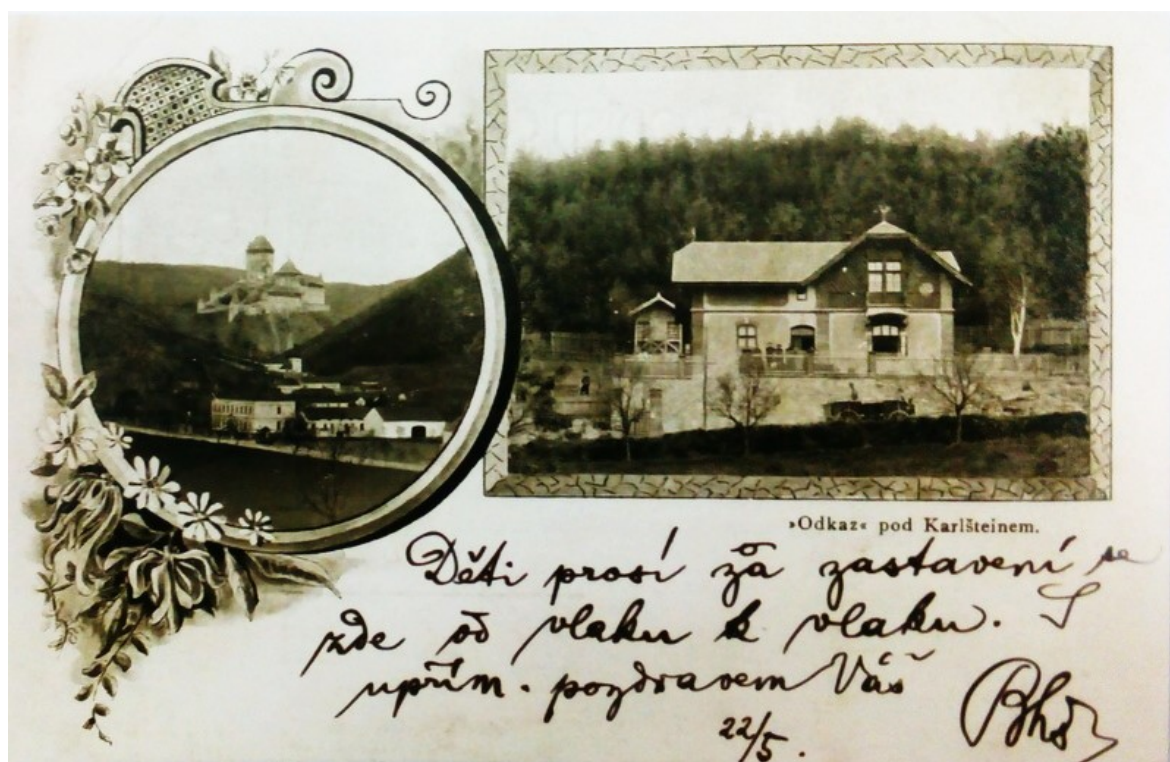 »Odkaz« pod Karlšteinem.
Děti prosí za zastavení se
zde od vlaku k vlaku. S
upřím. pozdravem Váš
22/5.